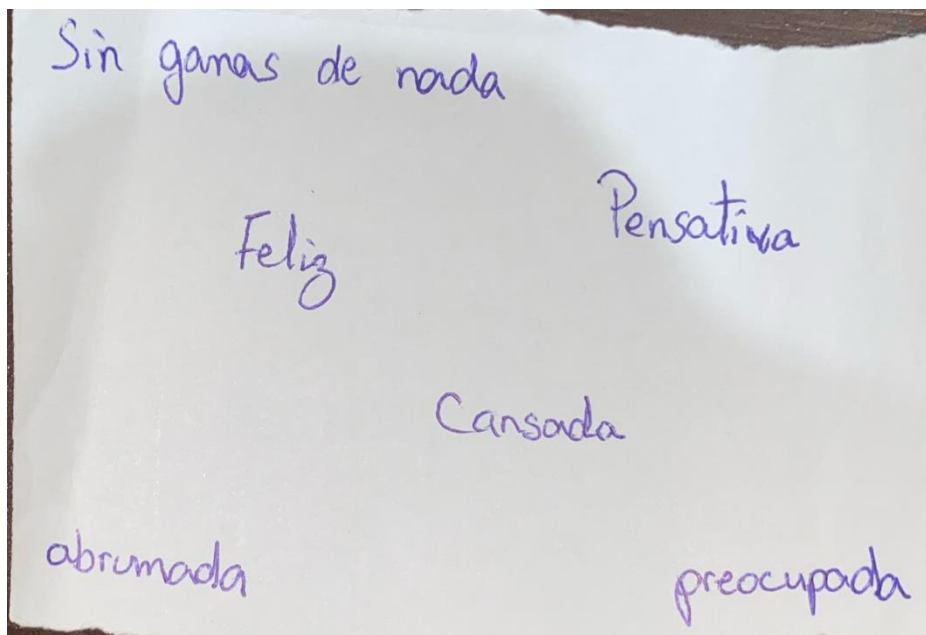 Sin ganas de nada
Pensativa
Feliz
Cansada
abrumada
preocupada